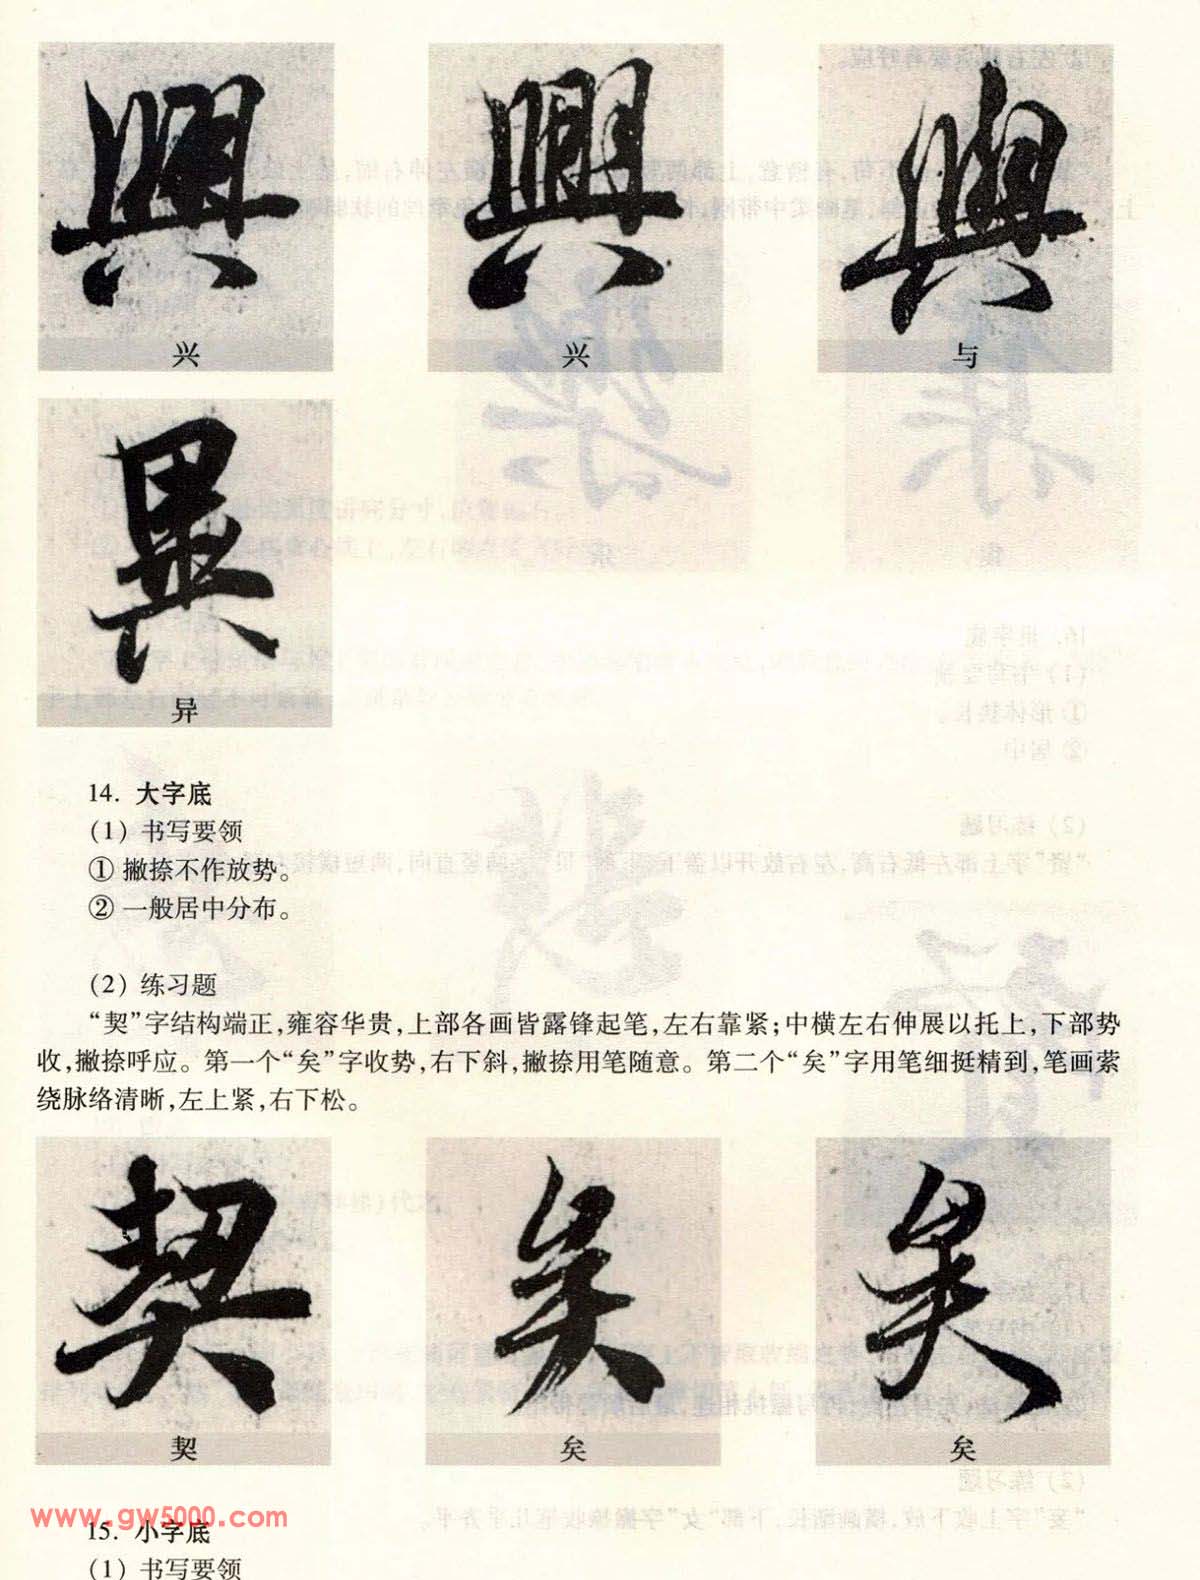 興 興 與
兴 兴 与
異
异
14. 大字底
(1) 书写要领
① 撇捺不作放势。
② 一般居中分布。
(2) 练习题
“契”字结构端正,雍容华贵,上部各画皆露锋起笔,左右靠紧;中横左右伸展以托上,下部势
收,撇捺呼应。第一个“矣”字收势,右下斜,撇捺用笔随意。第二个“矣”字用笔细挺精到,笔画萦
绕脉络清晰,左上紧,右下松。
契 矣 矣
契 矣 矣
www.gw5000.com
15. 小字底
(1) 书写要领